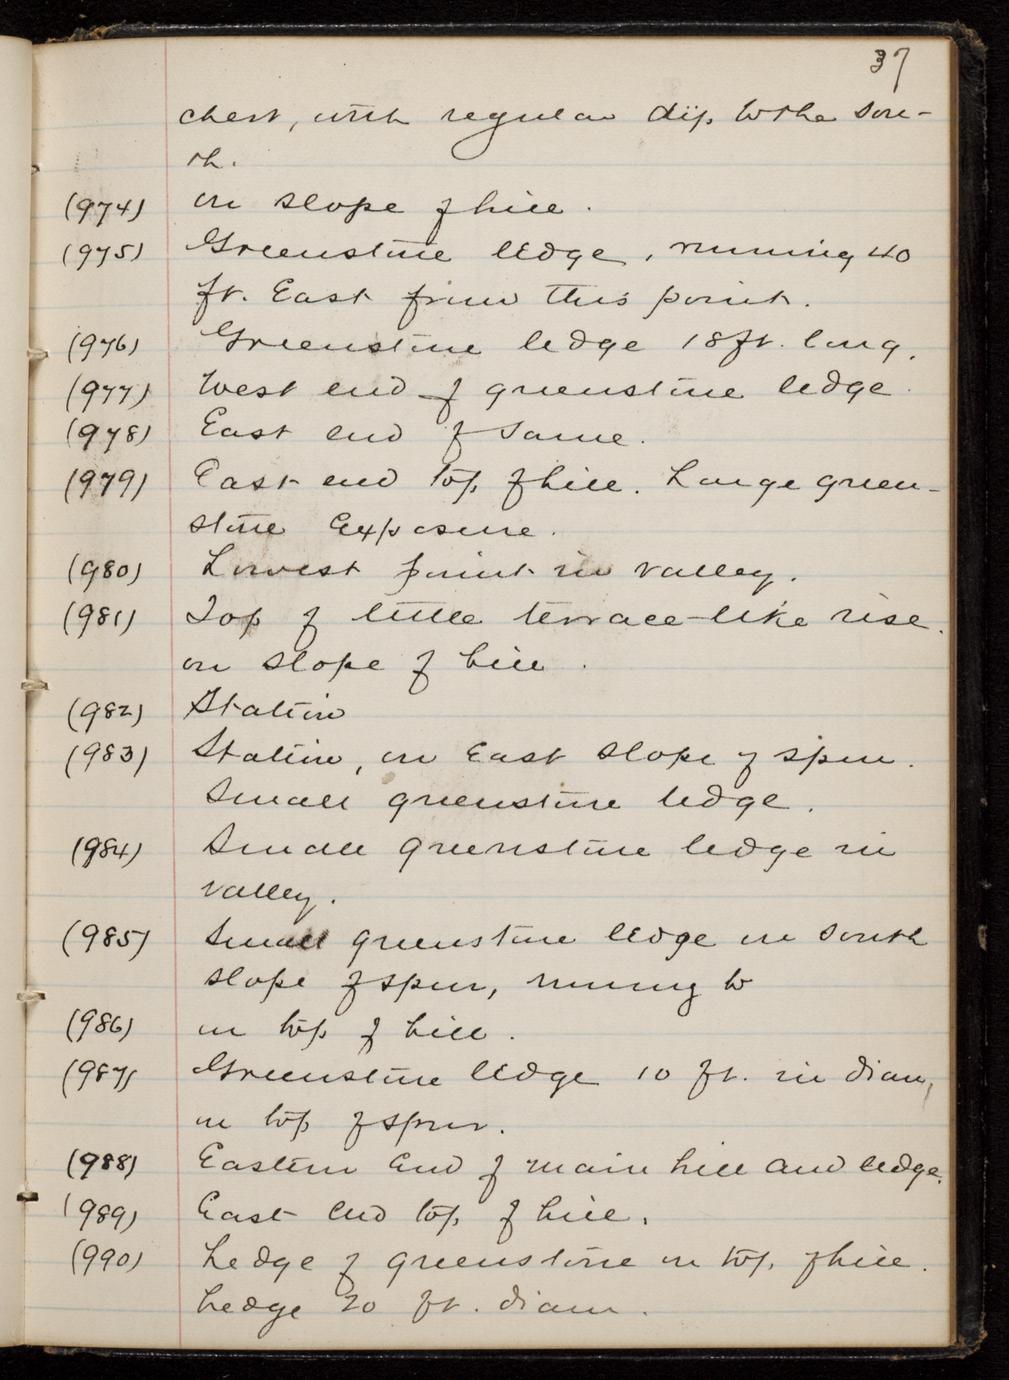 37
chert, with regular dip to the sou-
th.
(974) on slope of hill.
(975) Greenstone ledge, running 40
ft. East from this point.
(976) Greenstone ledge 18 ft. long.
(977) West end of greenstone ledge.
(978) East end of same.
(979) East end top of hill. Large green-
stone exposure.
(980) Lowest point in valley.
(981) Top of little terrace-like rise.
on slope of hill.
(982) Station
(983) Station, on East slope of spur.
Small greenstone ledge.
(984) Small greenstone ledge in
valley.
(985) Small greenstone ledge on south
slope of spur, running to
(986) on top of hill.
(987) Greenstone ledge 10 ft. in diam,
on top of spur.
(988) Eastern end of main hill and ledge.
(989) East end top of hill.
(990) Ledge of greenstone on top of hill.
Ledge 20 ft. diam.